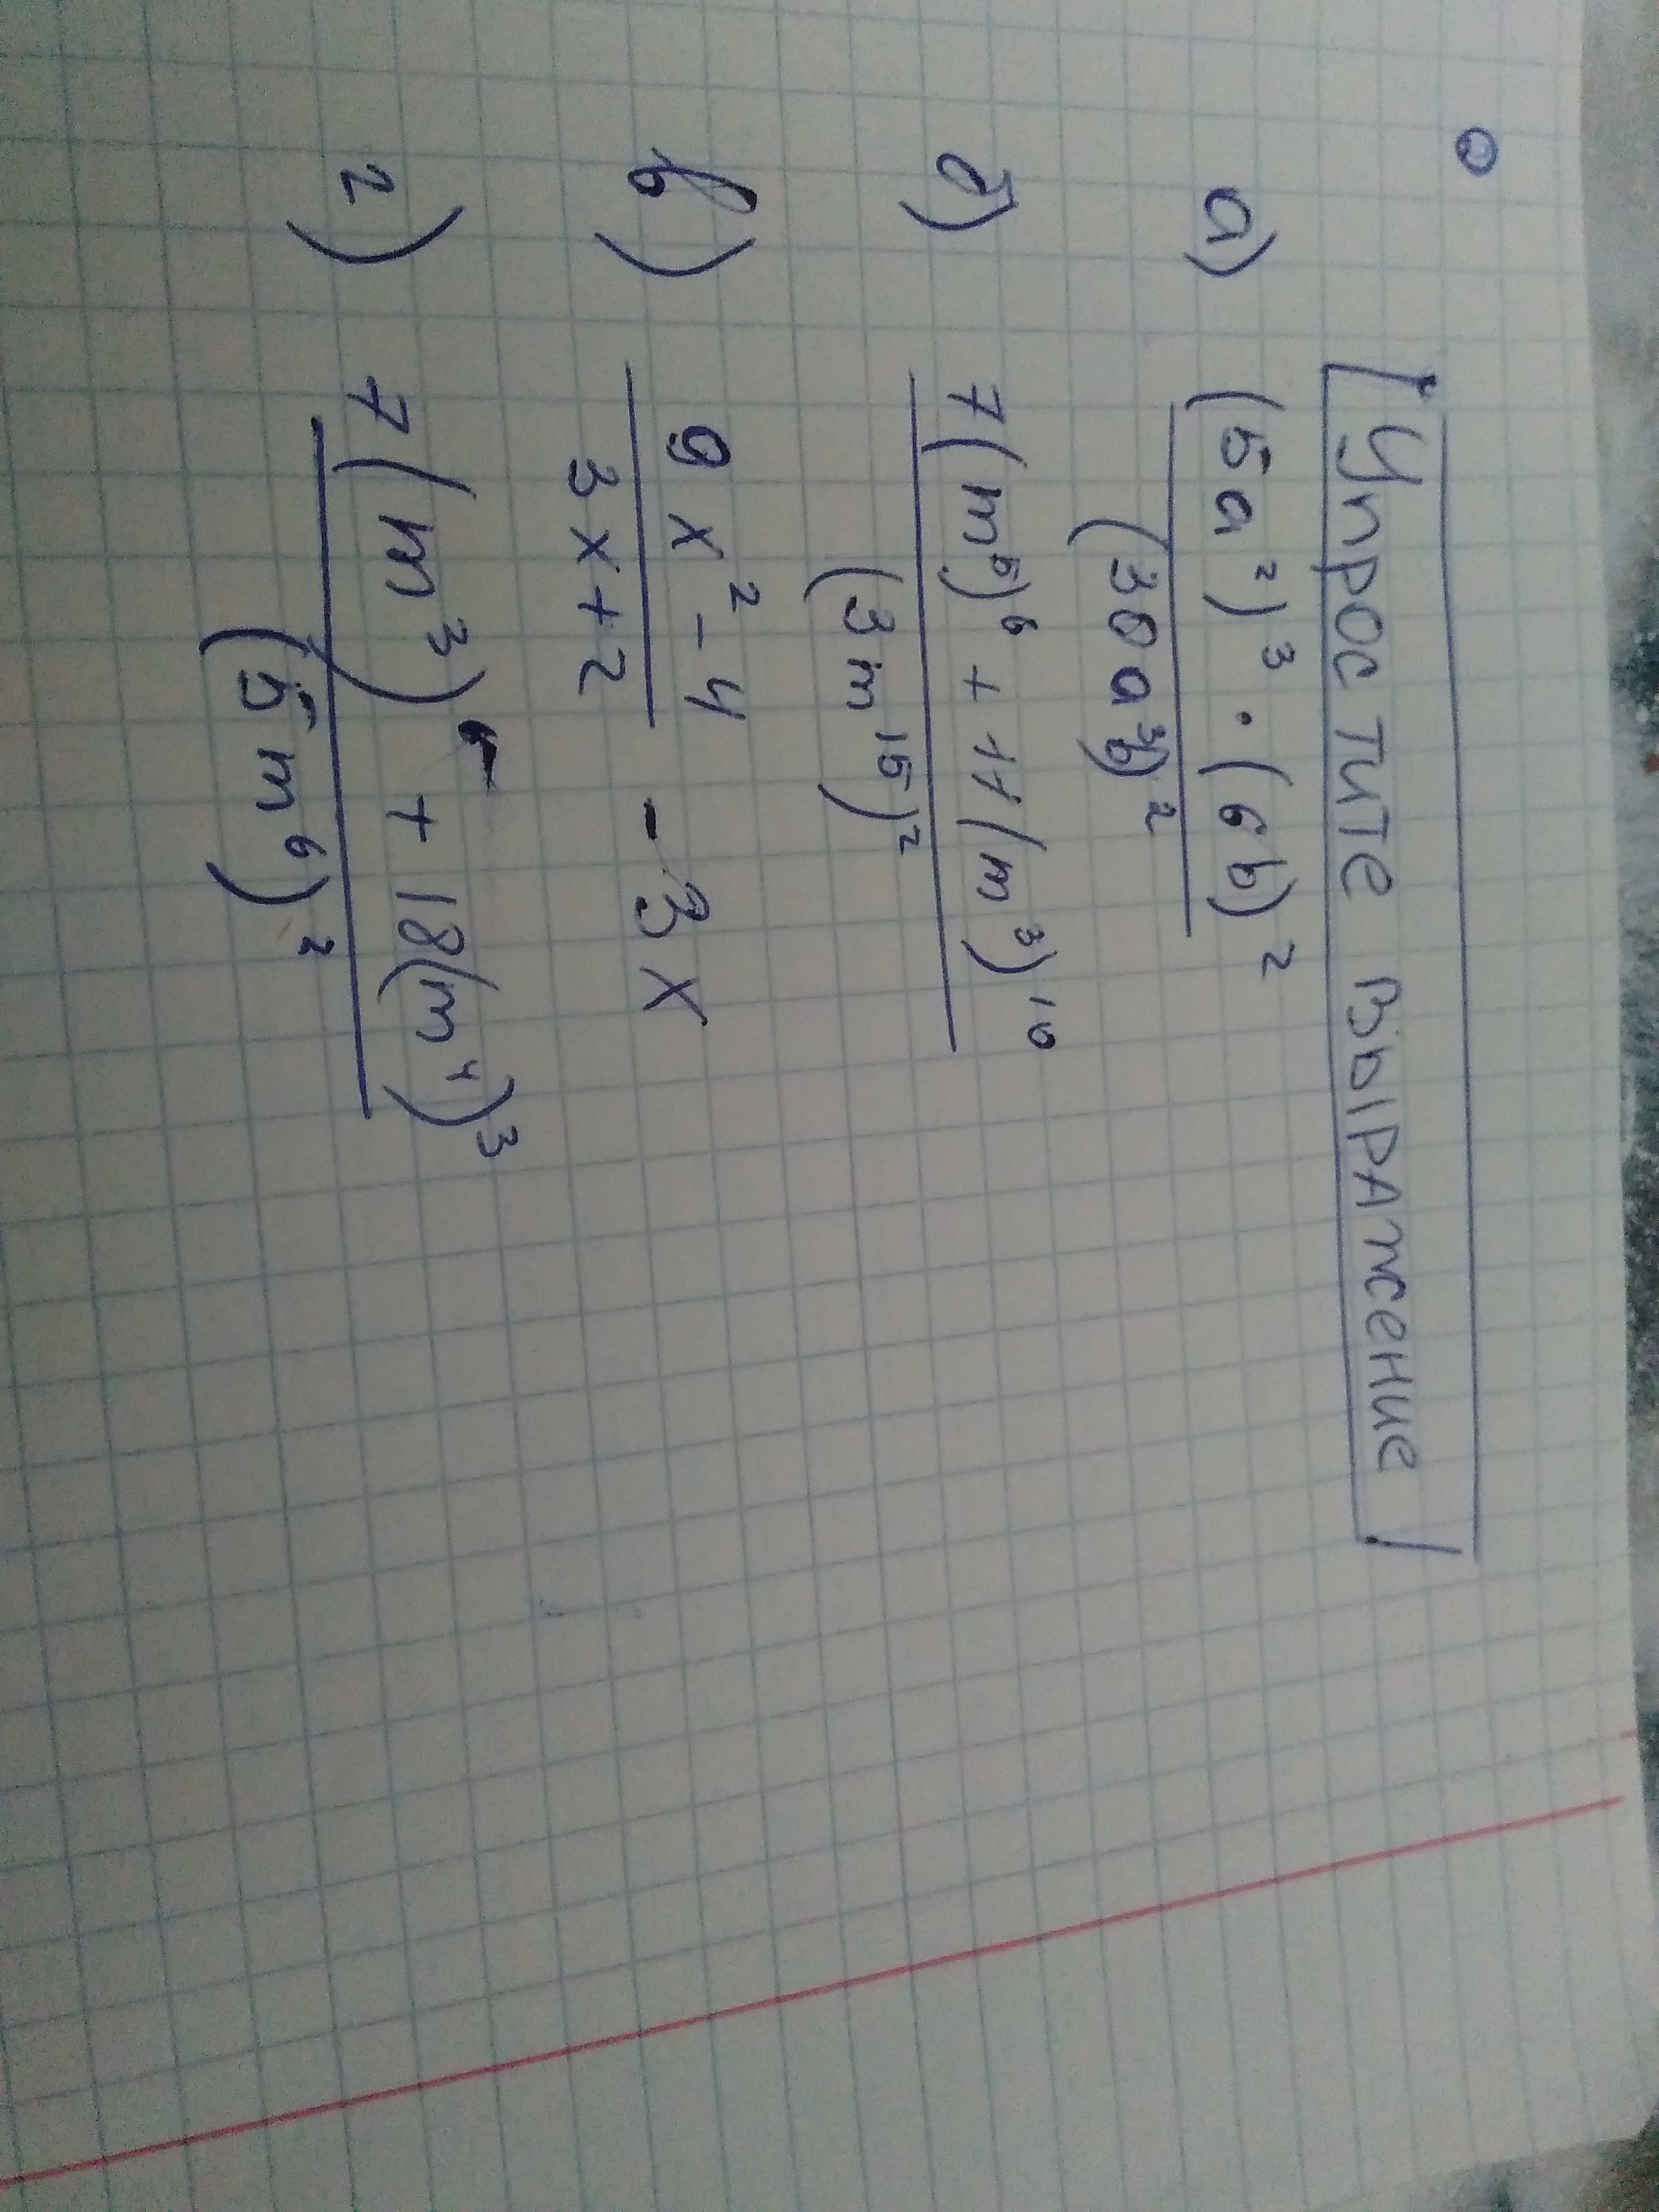 Упростите выражение
а) (5a²)³ · (6b)²
(30a³b)²
б) 7(m⁵)⁶ + 11(m³)¹⁰
(3m¹⁵)²
в) 9x² - 4 - 3x
3x + 2
г) 7(m³) + 18(m⁴)³
(5m⁶)²